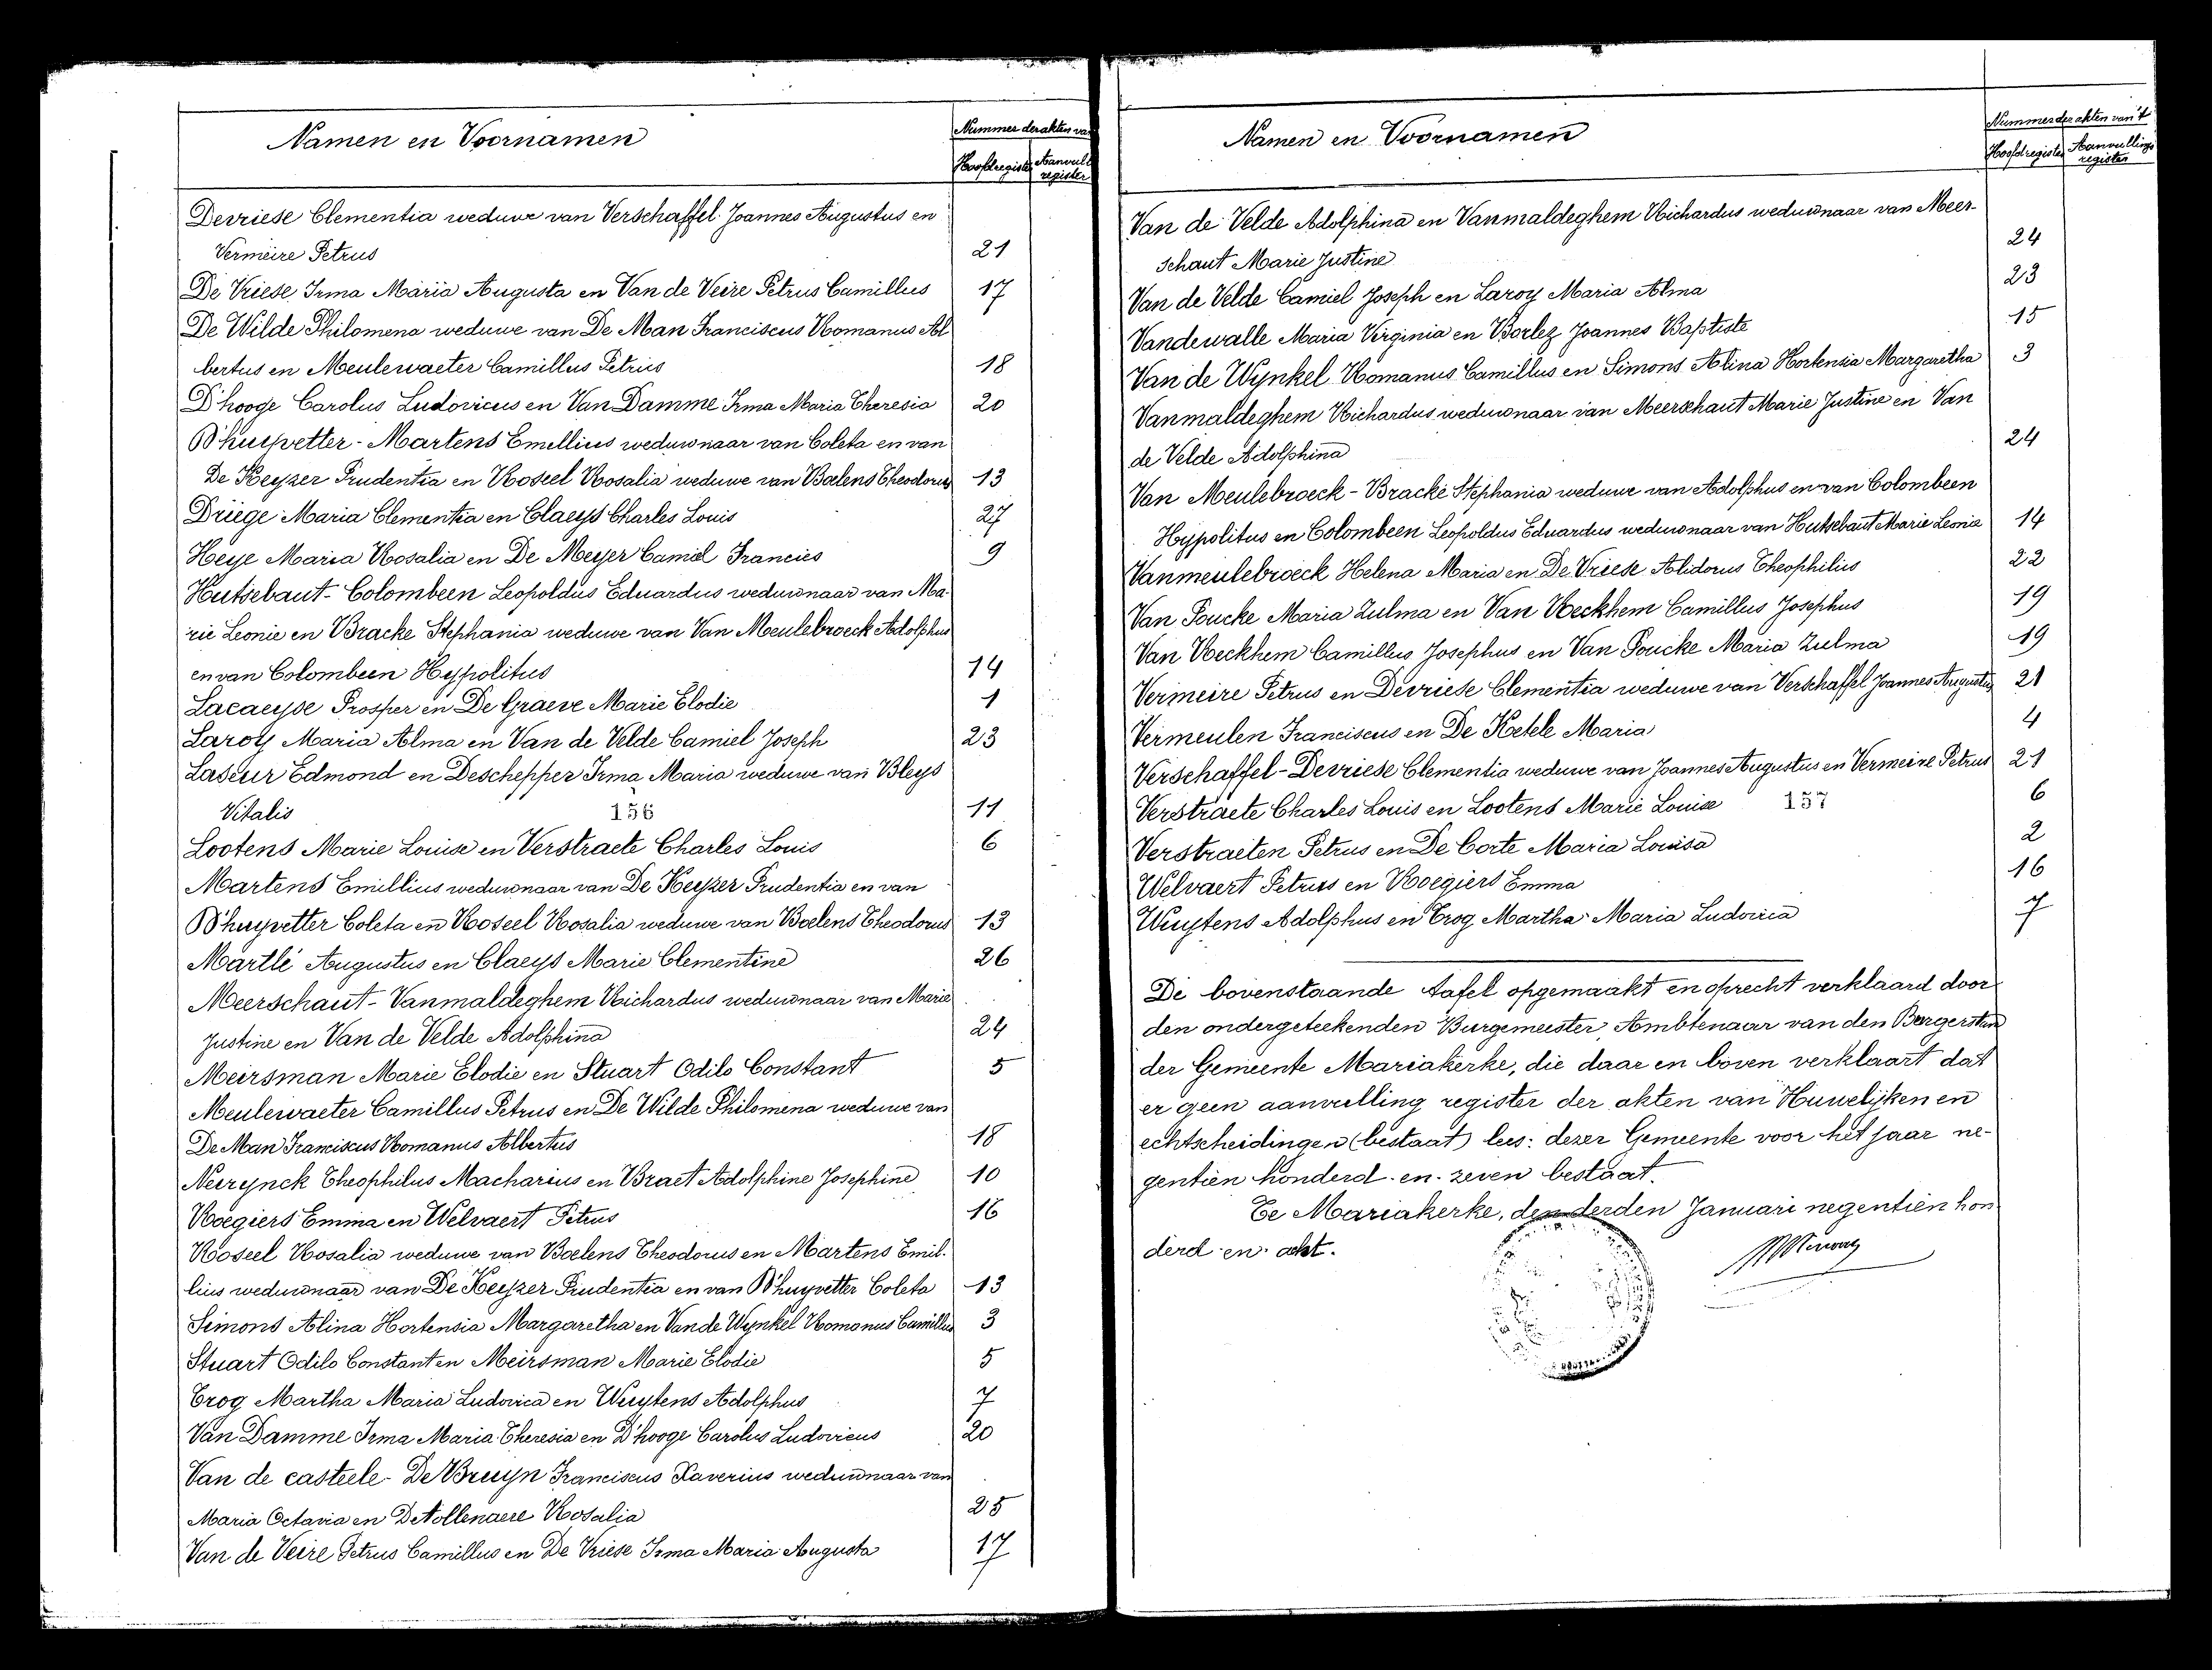 Namen en Voornamen
Nummer der akten va
Hoofdregister
Aanvull
register
Devriese Clementia weduwe van Verschaffel Joannes Augustus en
Vermeire Petrus 21
De Vriese Irma Maria Augusta en Van de Veire Petrus Camillus 17
De Wilde Philomena weduwe van De Man Franciscus Romanus Al
bertus en Meulewaeter Camillus Petrus 18
D'hooge Carolus Ludovicus en Van Damme Irma Maria Theresia 20
D'huyvetter - Martens Emillius weduwnaar van Coleta en van
De Keyzer Prudentia en Roseel Rosalia weduwe van Boelens Theodorus 13
Driege Maria Clementia en Claeys Charles Louis 27
Heye Maria Rosalia en De Meyer Camiel Francies 9
Hutsebaut - Colombeen Leopoldus Eduardus weduwnaar van Ma-
rie Leonie en Bracke Stephania weduwe van Van Meulebroeck Adolphus
en van Colombeen Hypolitus 14
Lacaeyse Prosper en De Graeve Marie Elodie 1
Laroy Maria Alma en Van de Velde Camiel Joseph 23
Laseur Edmond en Deschepper Irma Maria weduwe van Bleys
Vitalis 156 11
Lootens Marie Louise en Verstraete Charles Louis 6
Martens Emillius weduwnaar van De Keyzer Prudentia en van
D'huyvetter Coleta en Roseel Rosalia weduwe van Boelens Theodorus 13
Martlé Augustus en Claeys Marie Clementine 26
Meerschaut - Vanmaldeghem Richardus weduwnaar van Marie
Justine en Van de Velde Adolphina 24
Meirsman Marie Elodie en Stuart Odilo Constant 5
Meulewaeter Camillus Petrus en De Wilde Philomena weduwe van
De Man Franciscus Romanus Albertus 18
Neirynck Theophilus Macharius en Braet Adolphine Josephine 10
Roegiers Emma en Welvaert Petrus 16
Roseel Rosalia weduwe van Boelens Theodorus en Martens Emil-
lius weduwnaar van De Keyzer Prudentia en van D'huyvetter Coleta 13
Simons Alina Hortensia Margaretha en Van de Wynkel Romanus Camillus 3
Stuart Odilo Constant en Meirsman Marie Elodie 5
Trog Martha Maria Ludovica en Wuytens Adolphus 7
Van Damme Irma Maria Theresia en D'hooge Carolus Ludovicus 20
Van de casteele - De Bruyn Franciscus Xaverius weduwnaar van
Maria Octavia en De Nollenaere Rosalia 25
Van de Veire Petrus Camillus en De Vriese Irma Maria Augusta 17
Namen en Voornamen
Nummer der akten van 't
Hoofdregister
Aanvullings
register
Van de Velde Adolphina en Vanmaldeghem Richardus weduwnaar van Meer-
schaut Marie Justine 24
Van de Velde Camiel Joseph en Laroy Maria Alma 23
Vandewalle Maria Virginia en Borlez Joannes Baptiste 15
Van de Wynkel Romanus Camillus en Simons Alina Hortensia Margaretha 3
Vanmaldeghem Richardus weduwnaar van Meerschaut Marie Justine en Van
de Velde Adolphina 24
Van Meulebroeck - Bracke Stephania weduwe van Adolphus en van Colombeen
Hypolitus en Colombeen Leopoldus Eduardus weduwnaar van Hutsebaut Marie Leonie 14
Vanmeulebroeck Helena Maria en De Vriese Alidorus Theophilius 22
Van Poucke Maria Zulma en Van Reckhem Camillus Josephus 19
Van Reckhem Camillus Josephus en Van Poucke Maria Zulma 19
Vermeire Petrus en Devriese Clementia weduwe van Verschaffel Joannes Augustus 21
Vermeulen Franciscus en De Ketele Maria 4
Verschaffel - Devriese Clementia weduwe van Joannes Augustus en Vermeire Petrus 21
Verstraete Charles Louis en Lootens Marie Louise 157 6
Verstraeten Petrus en De Corte Maria Louisa 2
Welvaert Petrus en Roegiers Emma 16
Wuytens Adolphus en Trog Martha Maria Ludovica 7
De bovenstaande tafel opgemaakt en oprecht verklaard door
den ondergeteekenden Burgemeester, Ambtenaar van den Burgerstand
der Gemeente Mariakerke, die daar en boven verklaart dat
er geen aanvulling register der akten van Huwelijken en
echtscheidingen (bestaat) lees: dezer Gemeente voor het jaar ne-
gentien honderd en zeven bestaat.
Te Mariakerke, den derden Januari negentien hon
derd en acht.